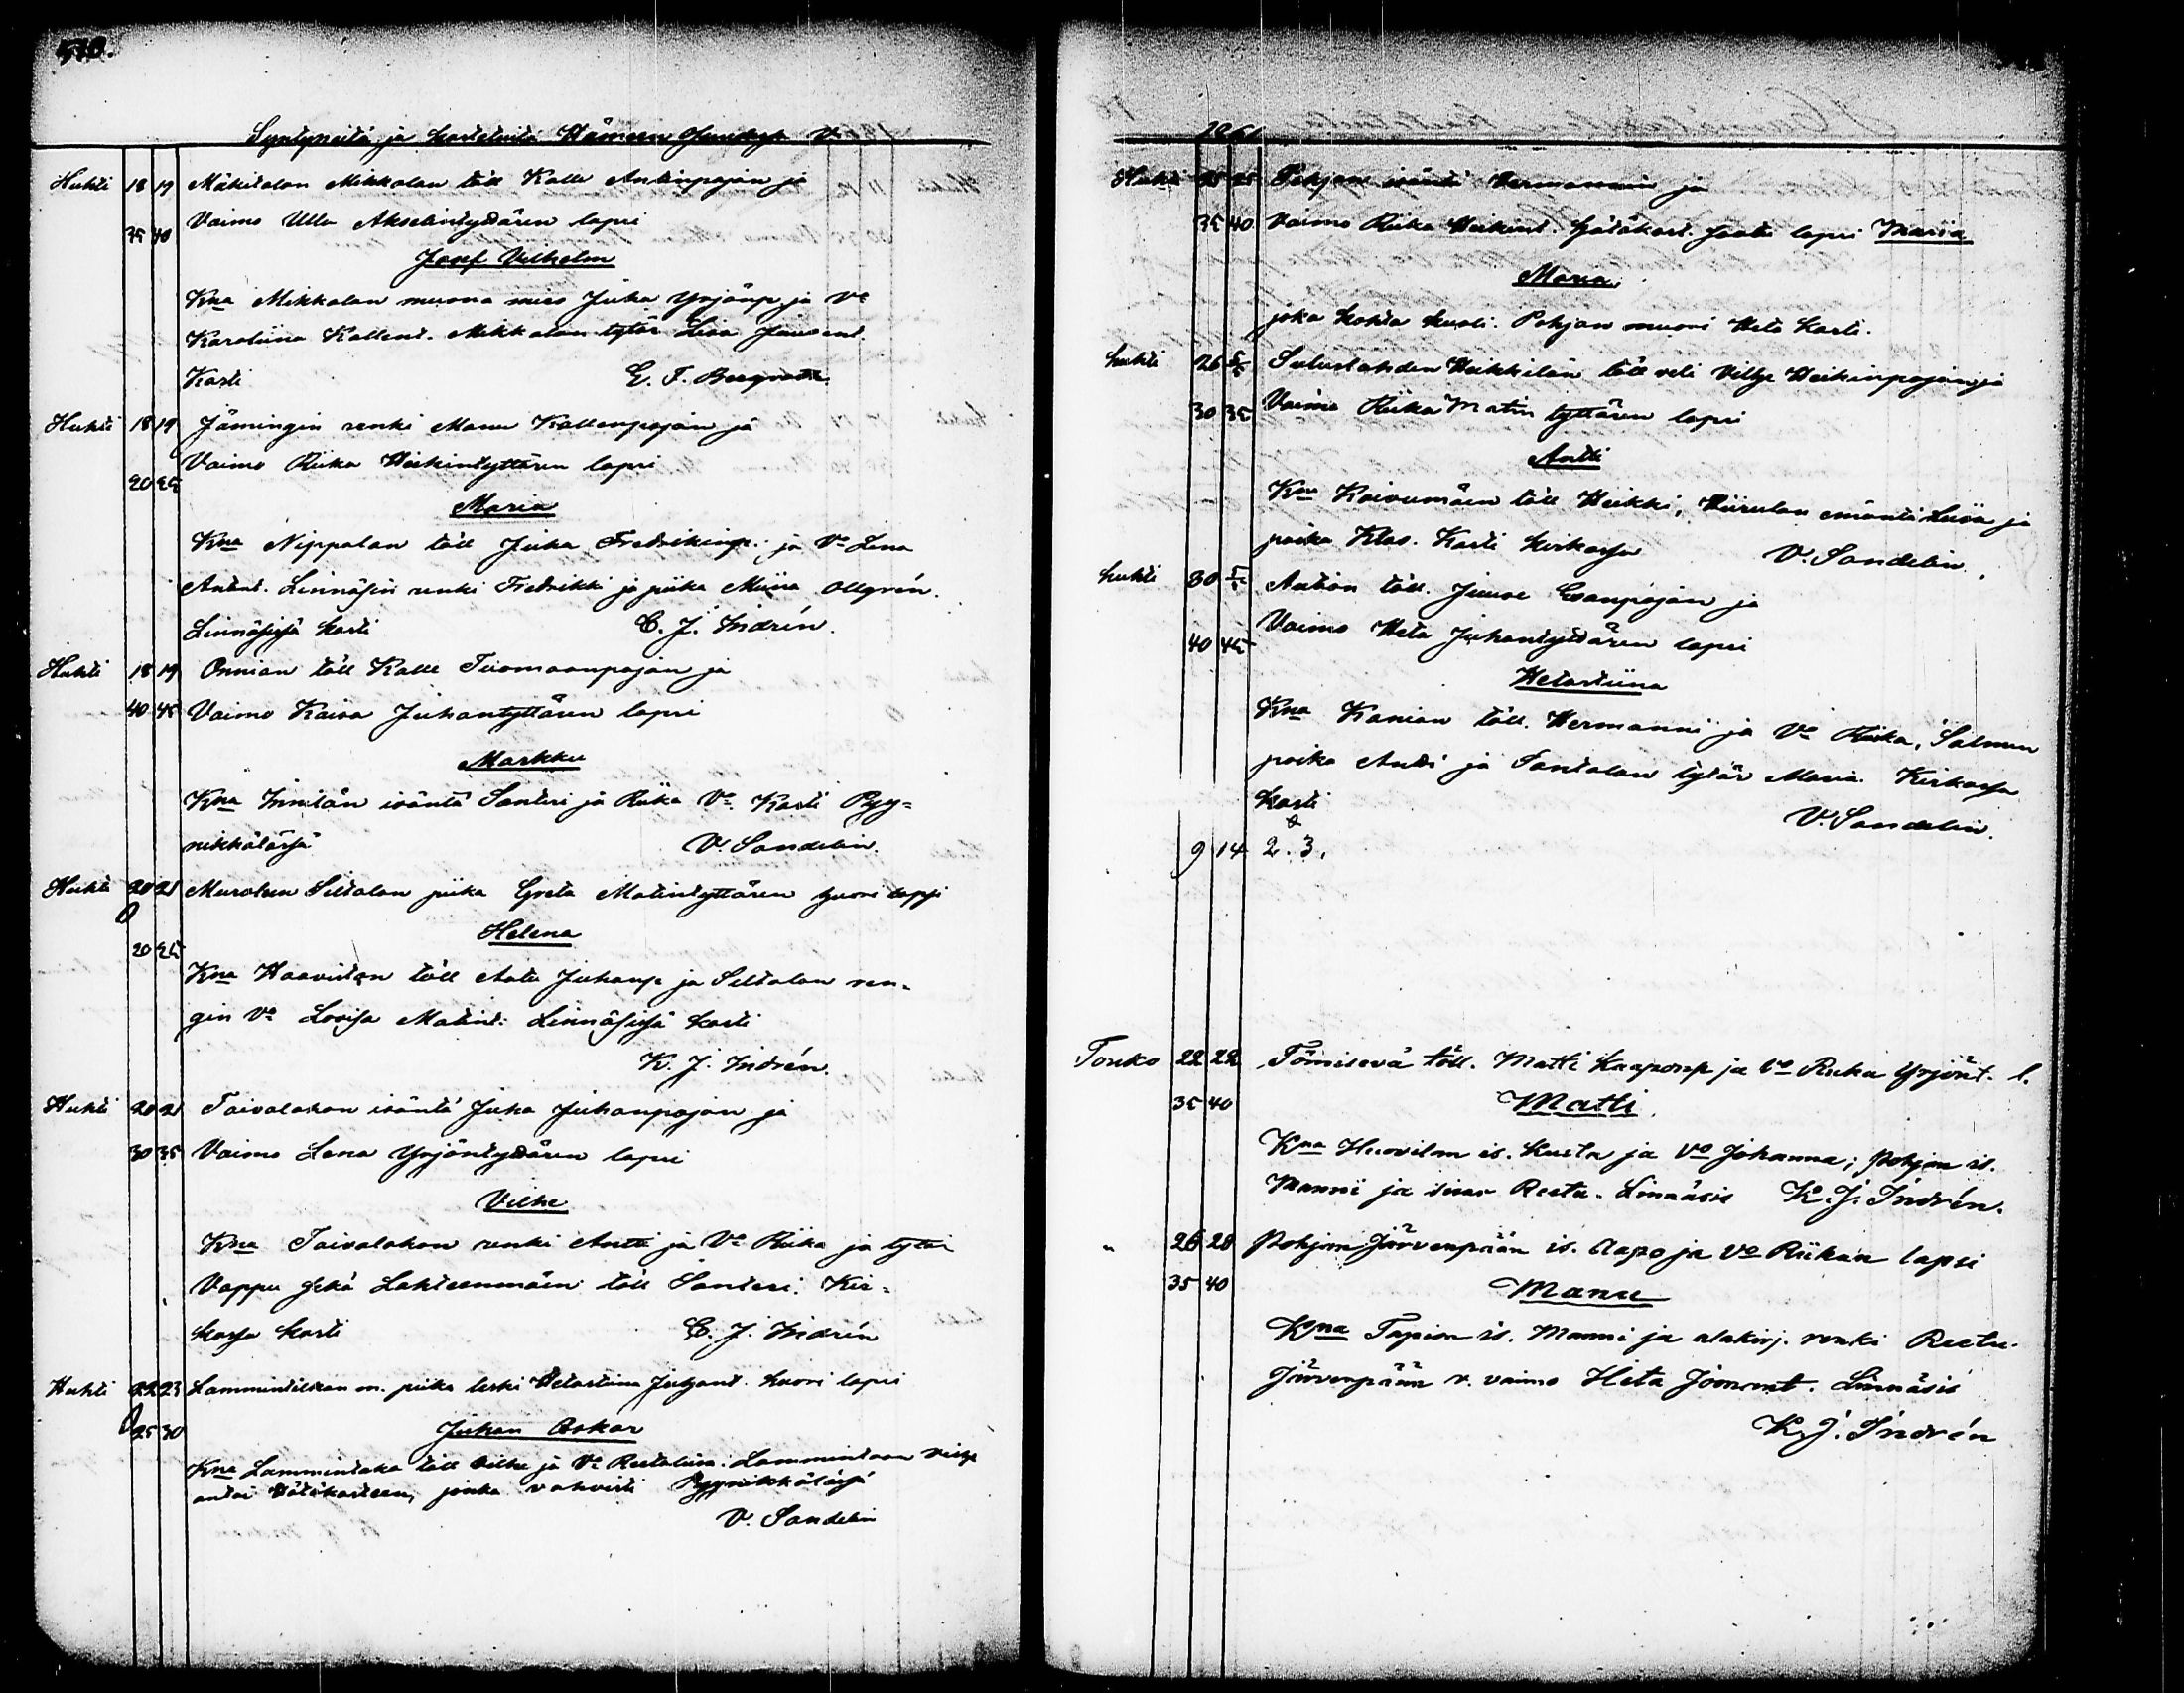 570.
Syntyneitä ja kastetuita Hämeen
Huhti 18 19 Mäkitalon Mikkolan töll Kalle Antinpojan ja
35 40 Vaimo Ulla Akselintydären lapsi
Josef Vilhelm
Kna Mikkolan muona mies Juha Yrjönp. ja Vo
Karoliina Kallent. Mikkolan tytär Liisa
Kasti E. F. Bergroth
Huhti 18 19 Jämingin renki Manu Kallenpojan ja
20 25 Vaimo Riika Heikintyttären lapsi
Maria
Kna Nippalan töll Juha Fredrikinp. ja Vo Lena
Antint. Linnäsin renki Fredrikki ja piika Miina Ollgrén.
Linnäsissä kasti C. J. Indrén.
Huhti 18 19 Onnian töll Kalle Tuomaanpojan ja
40 45 Vaimo Kaisa Juhantyttären lapsi
Markku
Kna isäntä Santeri ja Riika Vo. Kasti Pyy-
nikkälässä V. Sandelin.
Huhti 20 21 Muroleen Siltalan piika Greta Matintyttären huori lapsi
20 25 Helena
Kna Haaviston töll Aatu Juhanp ja Siltalan ren-
gin Vo Lovisa Matint: Linnäsissä kasti
K. J. Indrén.
Huhti 20 21 Taivalahon isäntä Juha Juhanpojan ja
30 35 Vaimo Lena Yrjöntydären lapsi
Vilhe
Kna Taivalahon renki Antti ja Vo Riika ja tytär
Vappu sekä Lahteenmäen töll Santeri. Kir-
kossa kasti C. J. Indrén
Huhti 22 23 Lammintilkan m. piika leski Hetastiina Juhant. huori lapsi
25 30 Juhan Oskar
Kna Lammintaka töll Vilhe ja Vo Reetaliisa. Lammintaan
antoi Hätäkasteen, jonka vahvisti Pyynikkälässä
V. Sandelin
1861
Huhti 25 25 Pohjan isäntä Hermannin ja
35 40 Vaimo Riika Heikint. hätäkast. saatu lapsi Maria
Maria,
joka kohta kuoli. Pohjan muori Heta kasti.
huhti 26 5/5 Heikkilän töll veli Viltje Heikinpojan ja
30 35 Vaimo Riika Matin tyttären lapsi
Antti
Kna Koivumäen töll Heikki, emäntä Liisa ja
poika Klas. Kasti kirkossa V. Sandelin.
huhti 30 5/5 Aution töll. Juuse Esanpojan ja
40 45 Vaimo Heta Juhantydären lapsi
Hetastiina
Kna Kanian töll. Hermanni ja Vo Riika, Salmen
poika Antti ja Tantalan tytär Maria. Kirkossa
Kasti V. Sandelin.
9 14 2. 3.
Touko 22 22 Tömisevä töll. Matti Kaaponp ja Vo Riika Yrjönt. l.
35 40 Matti
Kna Huovilan is. Kusta ja Vo Johanna; Pohjan is.
Manni ja sisar Reeta. Linnäsis K. J. Indrén.
" 26 28 Pohjan Järvenpään is. Aapo ja Vo Riikan lapsi
35 40 Manu
Kna Tapion is. Manni ja alakirj. renki Reetu.
Järvenpään v. vaimo Heta Joonant. Linnäsis
K. J. Indrén